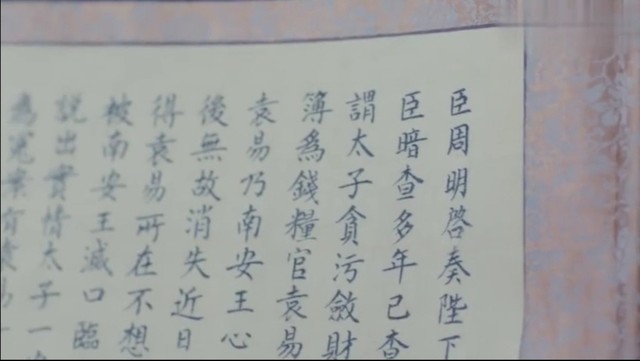 臣周明啓奏陛下
臣暗查多年已查
謂太子貪污斂財
簿為錢糧官袁易
袁易乃南安王心
後無故消失近日
得袁易所在不想
被南安王滅口臨
說出實情太子一
為冤案有袁易一